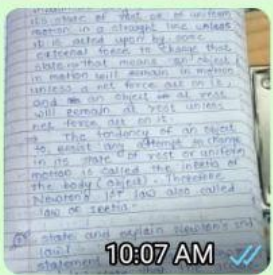 its state of rest or of uniform
motion in a straight line unless
it is acted upon by some
external force to change that
state that means an object
in motion will remain in motion
unless a net force act on it,
and an object at rest
will remain at rest unless
net force act on it.
The tendency of an object
to resist any attempt on change
in its state of rest or uniform
motion is called the inertia of
the body (object). Therefore
Newton's 1st law also called
law of
state and explain Newton's
law?
statement
10:07 AM